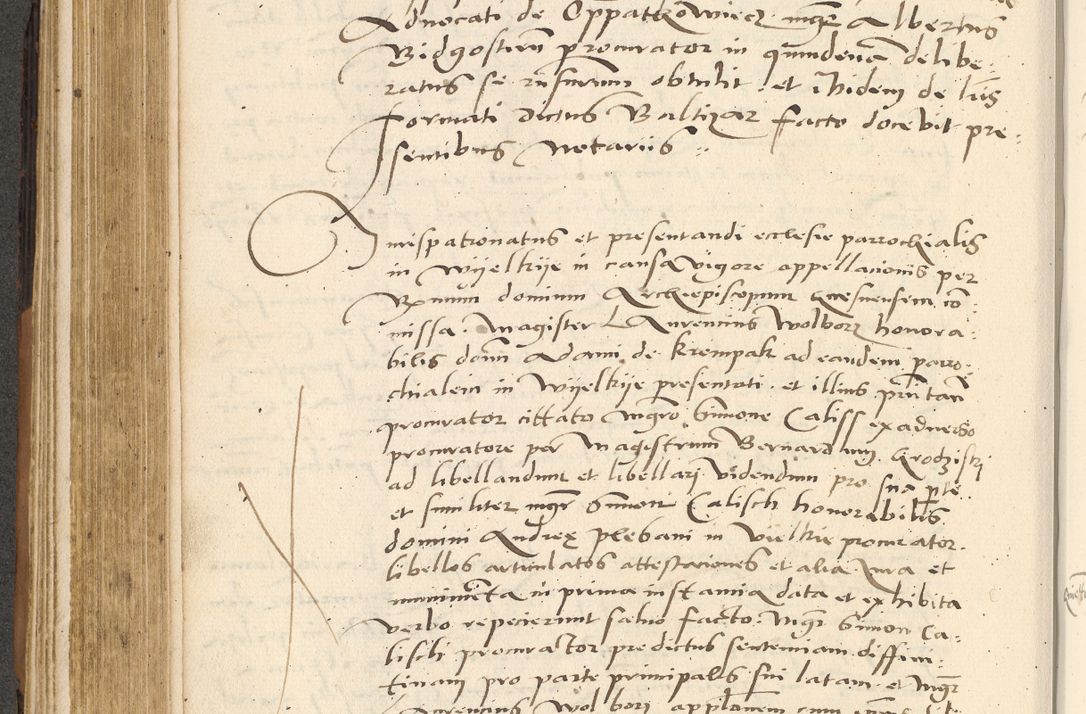 Advocati de Oppathowiecz mgr Albertus
Bidgostien procurator in quindenam delibe
ratus se rursum obtulit et ibidem de
formati dictus Baltizar facto docebit pre
sentibus notariis
Jurispatronatus et presentandi ecclesie parrochialis
in Wyelkije in causa vigore appellacionis per
dominum Archiepiscopum Gnesnensem co
missa Magister Laurencius Wolborz honora
bilis domi Adami de Krempak ad eandem parro
chialem in Wyelkije presentati et illius
procurator cittato mgro Simone Caliss ex adverso
procuratore per Magistrum Bernardum Grodzistri
ad libellandum et libellari videndum pro sua pte
et similiter mgr Simon Calisch honorabilis
domini Andree plebani in Vielkie procurator
libellos articulatos attestaciones et alia iura et
munimenta in prima instancia data et exhibita
verbo repecierunt salvo facto mgr Simon Ca
lisch procurator predictus sentenciam diffini
tivam pro parte principalis sui latam et mgr
Laurencius Wolbori